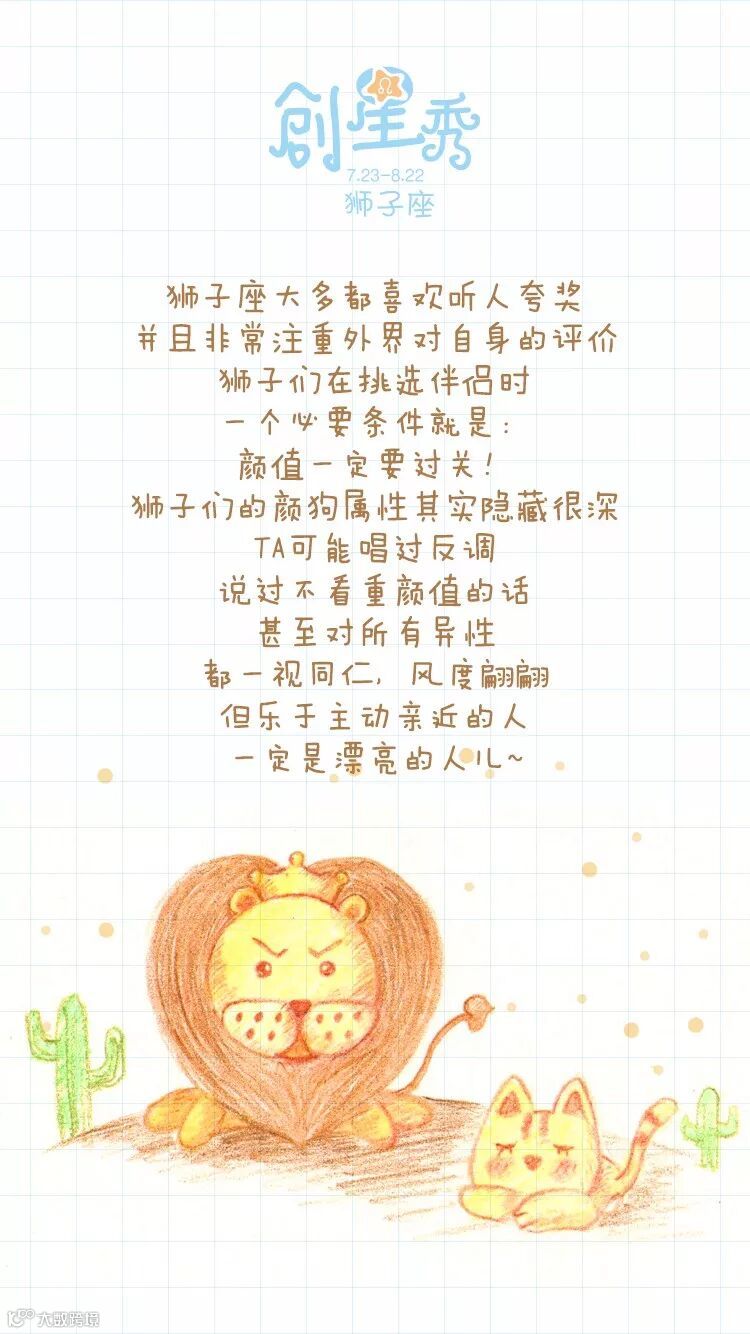 創星秀
7.23-8.22
狮子座
狮子座大多都喜欢听人夸奖
并且非常注重外界对自身的评价
狮子们在挑选伴侣时
一个必要条件就是：
颜值一定要过关！
狮子们的颜狗属性其实隐藏很深
TA可能唱过反调
说过不看重颜值的话
甚至对所有异性
都一视同仁，风度翩翩
但乐于主动亲近的人
一定是漂亮的人儿~
大数跨境